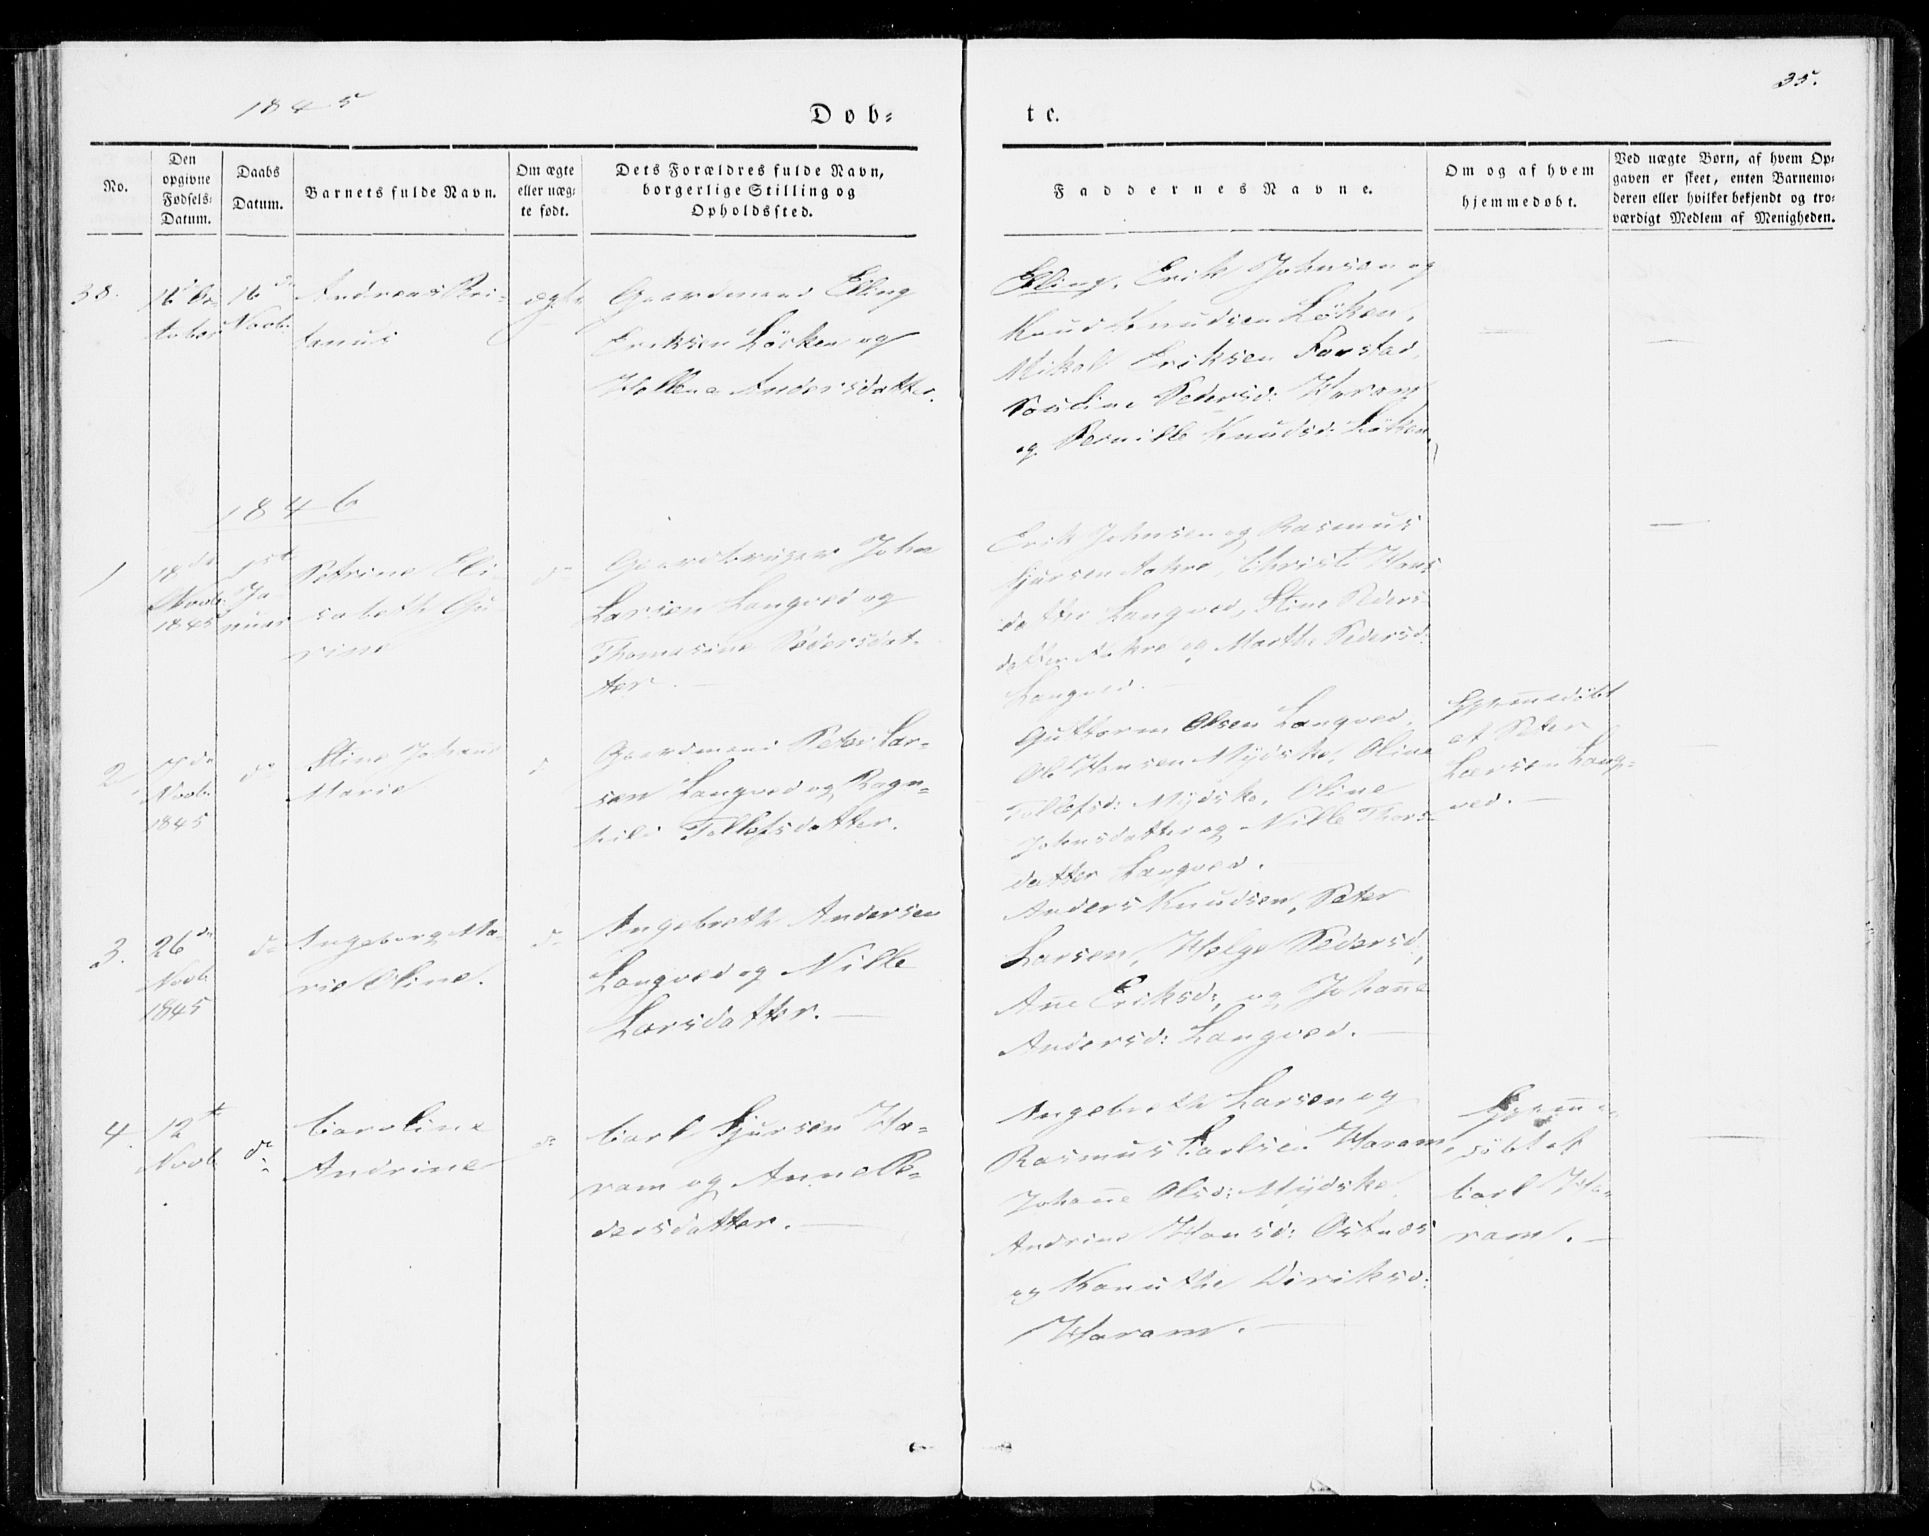 1845
Døb-
te.
35.
No.
Den
opgivne
Fødsels-
Datum.
Daabs
Datum.
Barnets fulde Navn.
Om ægte
eller uæg-
te født.
Dets Forældres fulde Navn,
borgerlige Stilling og
Opholdssted.
Faddernes Navne.
Om og af hvem
hjemmedøbt.
Ved uægte Børn, af hvem Op-
gaven er skeet, enten Barnemo-
deren eller hvilket bekjendt og tro-
værdigt Medlem af Menigheden.
38.
16de Oc-
tober
16de
Novb.
Andreas
tanus
ægte
Gaardmand Elling
Eriksen Löken og
Andersdatter.
Elling, Erik Johnsen og
Knud Knudsen Löken,
Mikal Eriksen Farstad,
Pauline Pedersd: Haram
og Pernille Knudsd: Löken.
1846
1
18de
Novb.
1845
1st
Ja-
nuar
Petrine Eli-
sabeth Gu-
rine
do
Gaardbruger John
Larsen Longved og
Thomasine Pedersdat-
ter.
Erik Johnsen og Rasmus
Sjursen Aakre, Christi Hans
datter Longved, Stine Peders-
datter Aakre og Marthe Pedersd:
Longved.
2.
17de
Novb.
1845
do
Stine Johanne
Marie
do
Gaardmand Peter Lar-
sen Longved og Ragn-
hild Tollefsdatter.
Guttorm Olsen Longved,
Ole Hansen Mydske, Oline
Tollefsd: Mydske, Oline
Johnsdatter og Nille Thors-
datter Longved.
Hjem̄edöbt
af Peter
Larsen Long-
ved.
3.
26de
Novb.
1845
do
Ingeborg Ma-
rie Oline.
do
Ingebreth Andersen
Longved og Nille
Larsdatter.
Anders Knudsen, Peter
Larsen, Helge Pedersd:,
An̄e Eriksd:, og Johan̄e
Andersd: Longved.
4.
12te
Novb.
do
Caroline
Andrine
do
Carl Sjursen Ha-
ram og Anne Pe-
dersdatter.
Ingebreth Larsen og
Rasmus Carlsen Haram,
Johan̄e Olsd: Mydske,
Andrine Hansd: Ostnæs
og Kanuthe Diriksd:
Haram.
Hjem̄e-
döbt af
Carl Ha-
ram.